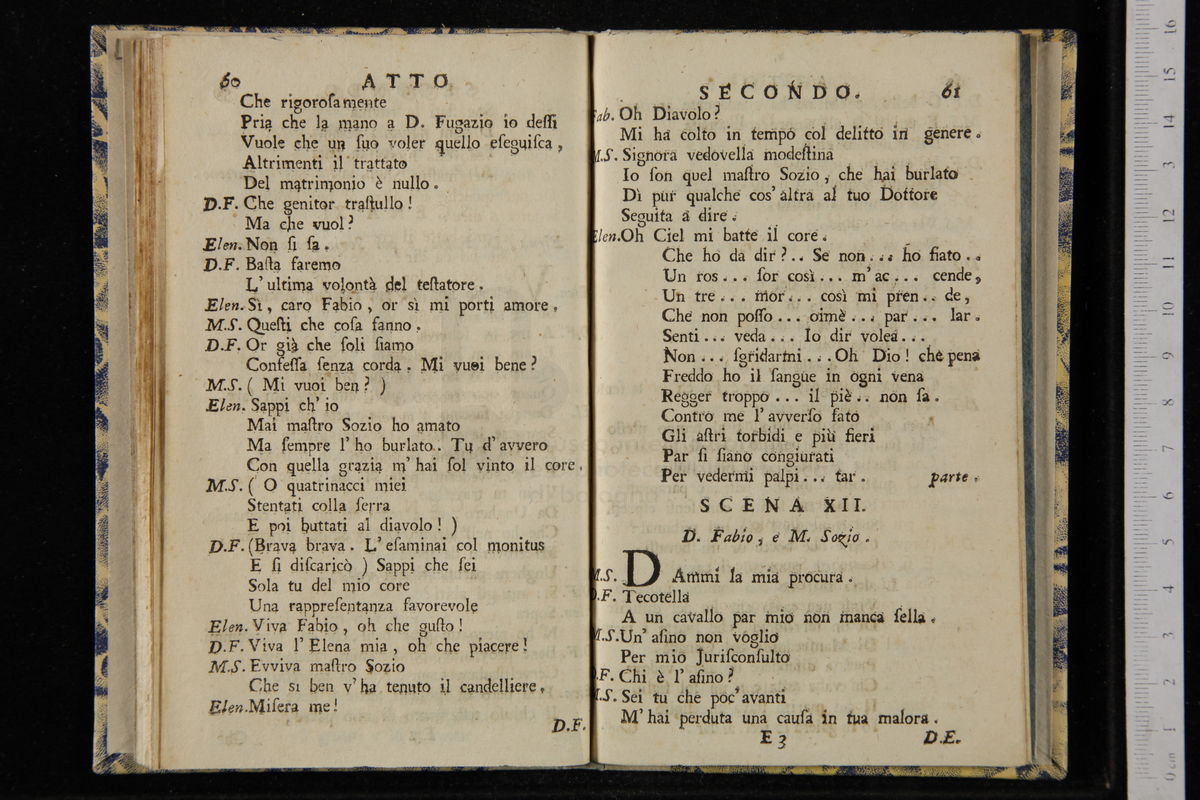 60 ATTO
Che rigoroſamente
Pria che la mano a D. Fugazio io deſſi
Vuole che un ſuo voler quello eſeguiſca,
Altrimenti il trattato
Del matrimonio è nullo.
D.F. Che genitor traſtullo!
Ma che vuol?
Elen. Non ſi ſa.
D.F. Baſta faremo
L'ultima volontà del teſtatore.
Elen. Sì, caro Fabio, or sì mi porti amore,
M.S. Queſti che coſa fanno.
D.F. Or già che ſoli ſiamo
Confeſſa ſenza corda. Mi vuoi bene?
M.S. ( Mi vuoi ben? )
Elen. Sappi ch'io
Mai maſtro Sozio ho amato
Ma ſempre l'ho burlato.. Tu d'avvero
Con quella grazia m'hai ſol vinto il core.
M.S. ( O quatrinacci miei
Stentati colla ſerra
E poi buttati al diavolo! )
D.F. (Brava brava. L'eſaminai col monitus
E ſi diſcaricò ) Sappi che ſei
Sola tu del mio core
Una rappreſentanza favorevole
Elen. Viva Fabio, oh che guſto!
D.F. Viva l'Elena mia, oh che piacere!
M.S. Evviva maſtro Sozio
Che si ben v'ha tenuto il candelliere,
Elen. Miſera me!
D.F.
SECONDO. 61
Fab. Oh Diavolo?
Mi ha colto in tempo col delitto in genere.
M.S. Signora vedovella modeſtina
Io ſon quel maſtro Sozio, che hai burlato
Dì pur qualche cos'altra al tuo Dottore
Seguita a dire.
Elen. Oh Ciel mi batte il core.
Che ho da dir?.. Se non... ho fiato..
Un ros... ſor così... m'ac... cende,
Un tre... mor... così mi pren.. de,
Che non poſſo... oimè... par... lar.
Senti... veda... Io dir volea...
Non... ſgridarmi... Oh Dio! che pena
Freddo ho il ſangue in ogni vena
Regger troppo... il piè.. non ſa.
Contro me l'avverſo fato
Gli aſtri torbidi e più fieri
Par ſi ſiano congiurati
Per vedermi palpi... tar. parte.
SCENA XII.
D. Fabio, e M. Sozio.
M.S. DAmmi la mia procura.
D.F. Tecotella
A un cavallo par mio non manca ſella.
M.S. Un'aſino non voglio
Per mio Juriſconſulto
D.F. Chi è l'aſino?
M.S. Sei tu che poc'avanti
M'hai perduta una cauſa in tua malora.
E 3 D.E.